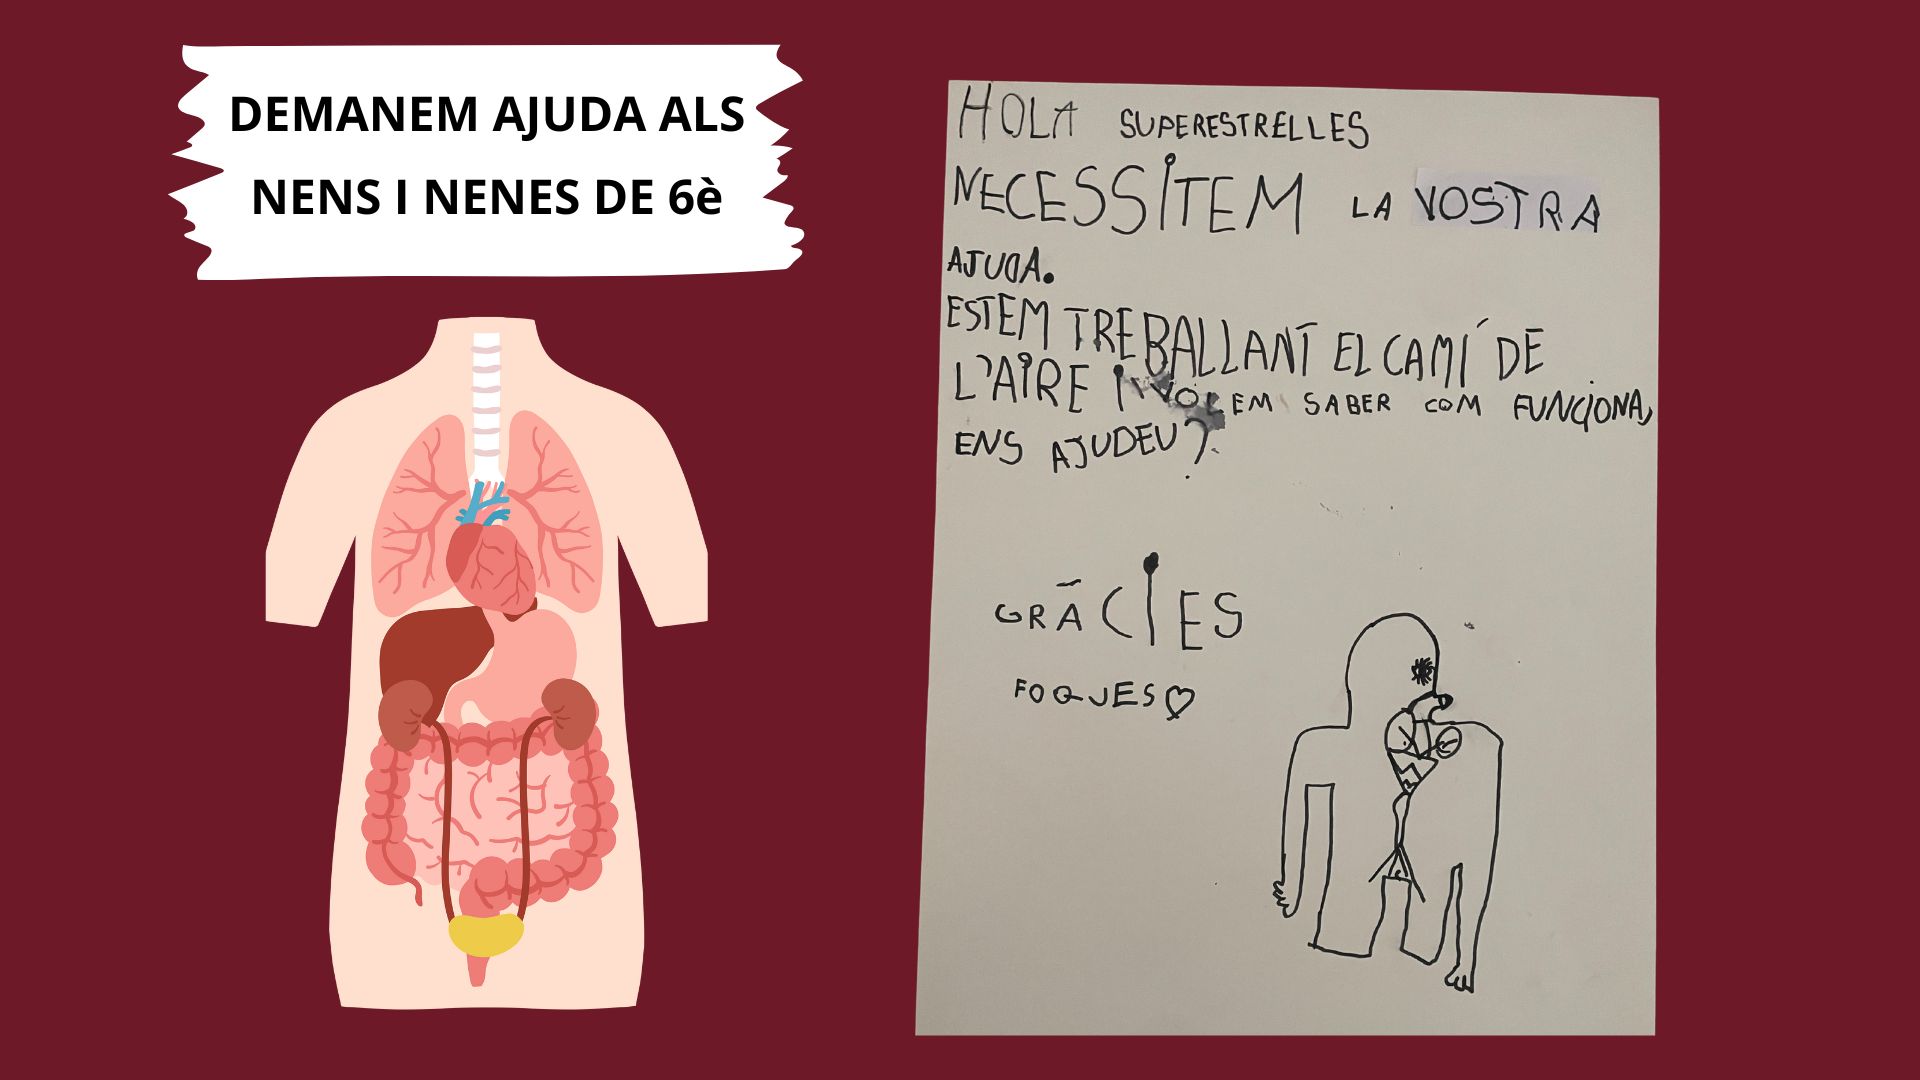 DEMANEM AJUDA ALS
NENS I NENES DE 6è
HOLA SUPERESTRELLES
NECESSITEM LA VOSTRA
AJUDA.
ESTEM TREBALLANT EL CAMÍ DE
L'AIRE I VOLEM SABER COM FUNCIONA,
ENS AJUDEU?
GRÀCIES
FOQUES♡